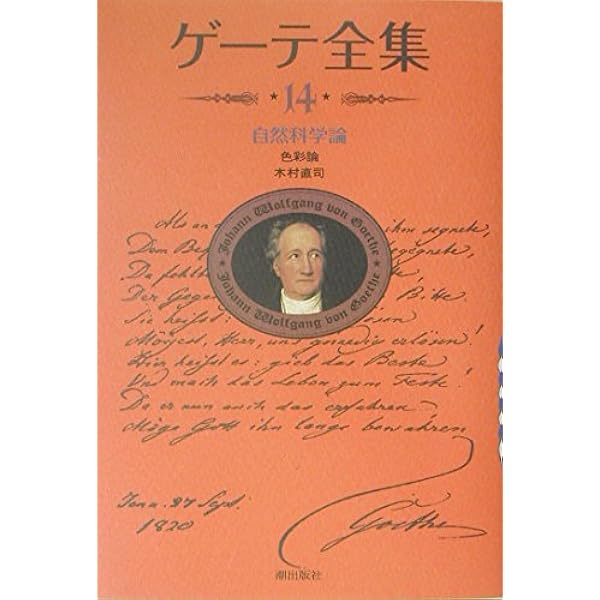 ゲーテ全集
14
自然科学論
色彩論
木村直司
Johann Wolfgang von Goethe
Johann Wolfgang von Goethe
Als an ihm segnete,
Dem Be gegnete,
Du fehlte
Der Gegen Bitte.
Sie heißt: ösen
Möges, Herr, uns gnaedig erlösen!
Hier heißt es: gieb das Beste
Und mach das Leben zum Feste!
Da er nun auch das erfahren
Möge Gott ihn lange bewahren
Jena 27 Sept.
1820
Goethe
潮出版社